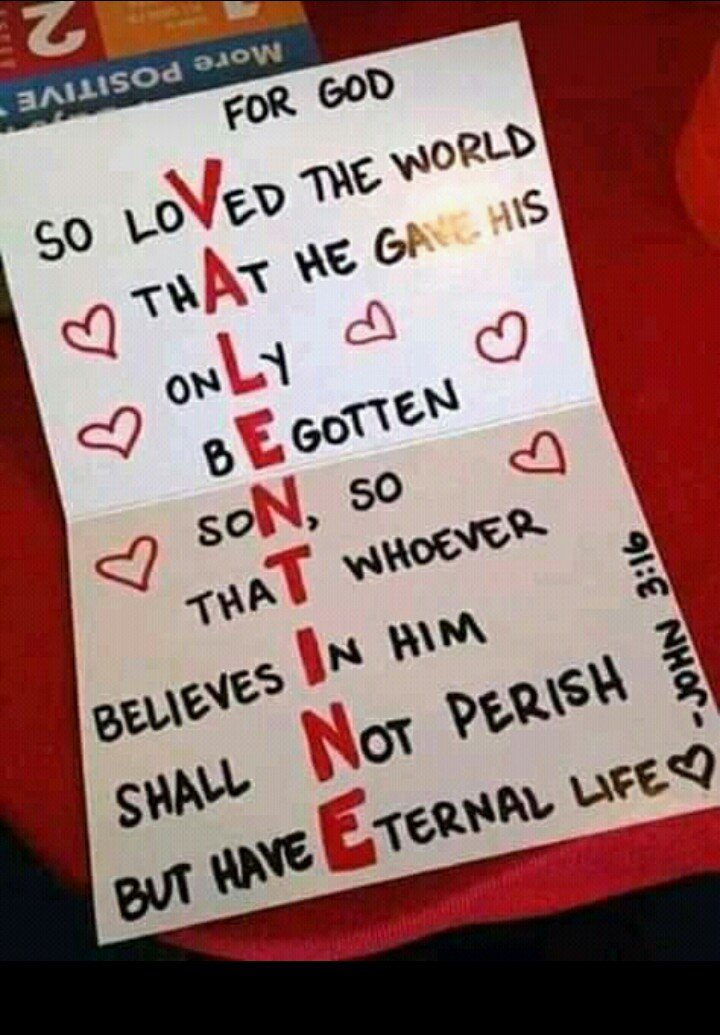 2
More POSITIVE
FOR GOD
SO LOVED THE WORLD
THAT HE GAVE HIS
ONLY
BEGOTTEN
SON, SO
THAT WHOEVER
BELIEVES IN HIM
SHALL NOT PERISH
BUT HAVE ETERNAL LIFE
-JOHN 3:16